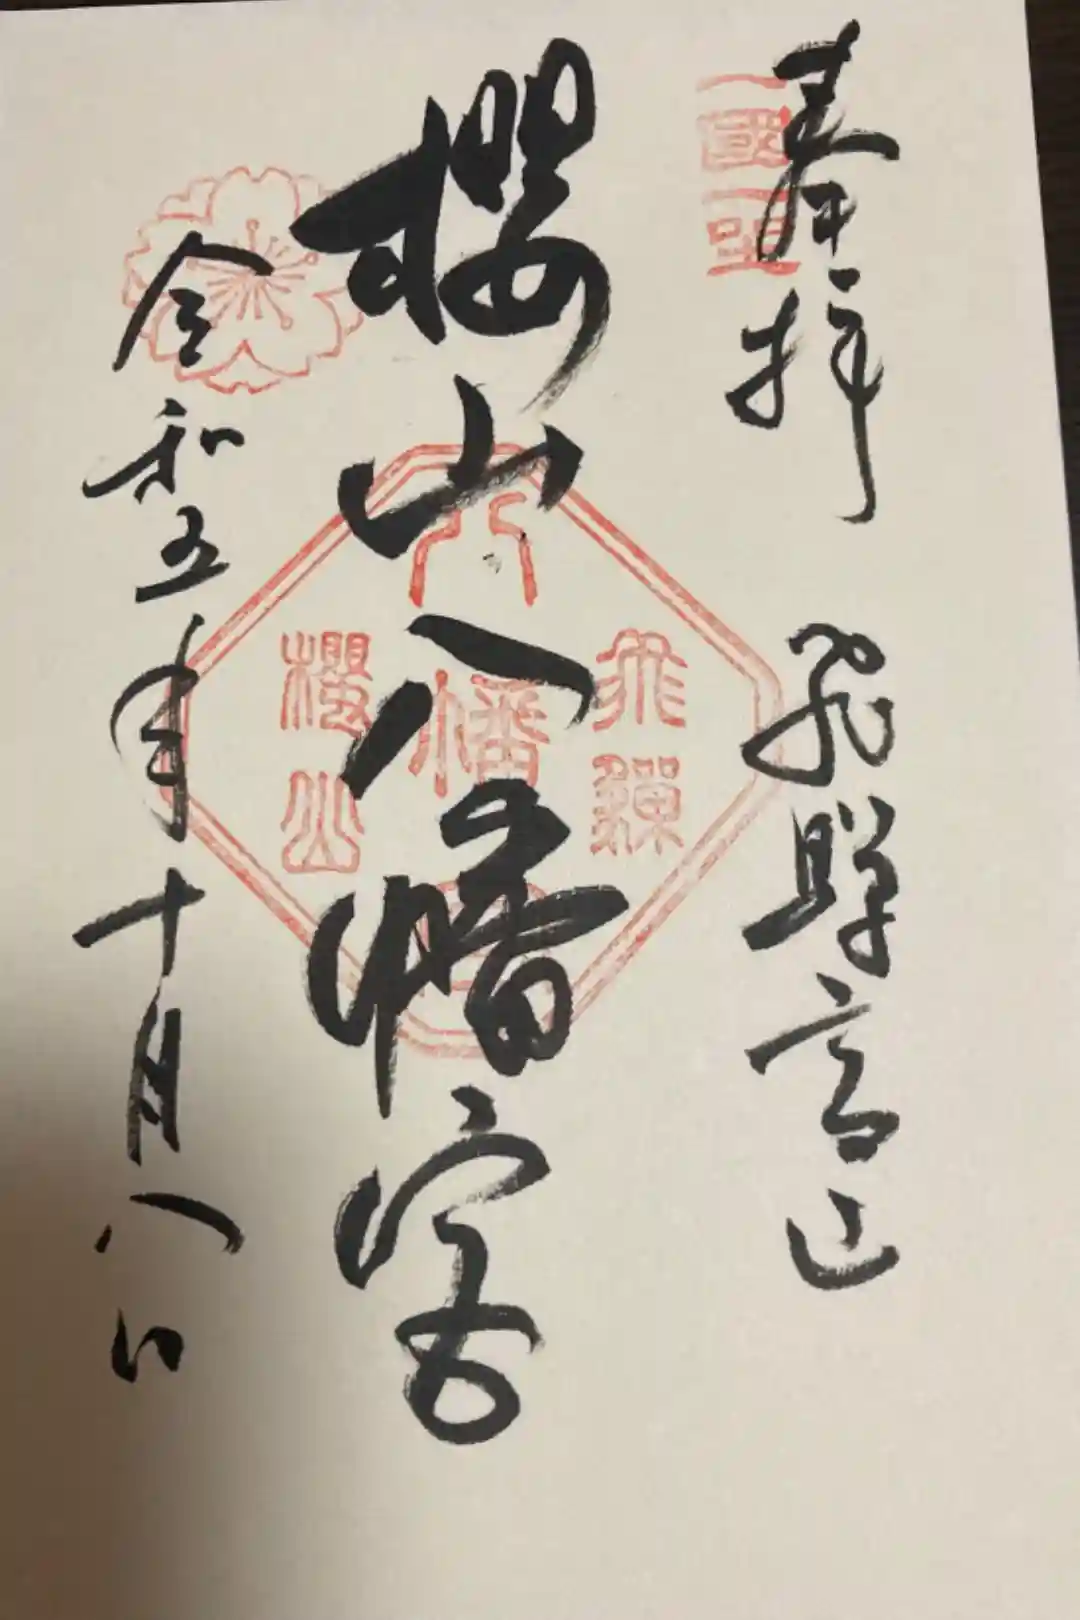 奉拝 飛騨高山
一國一社
櫻山八幡宮
飛騨
八幡宮
櫻山
令和五年十月八日